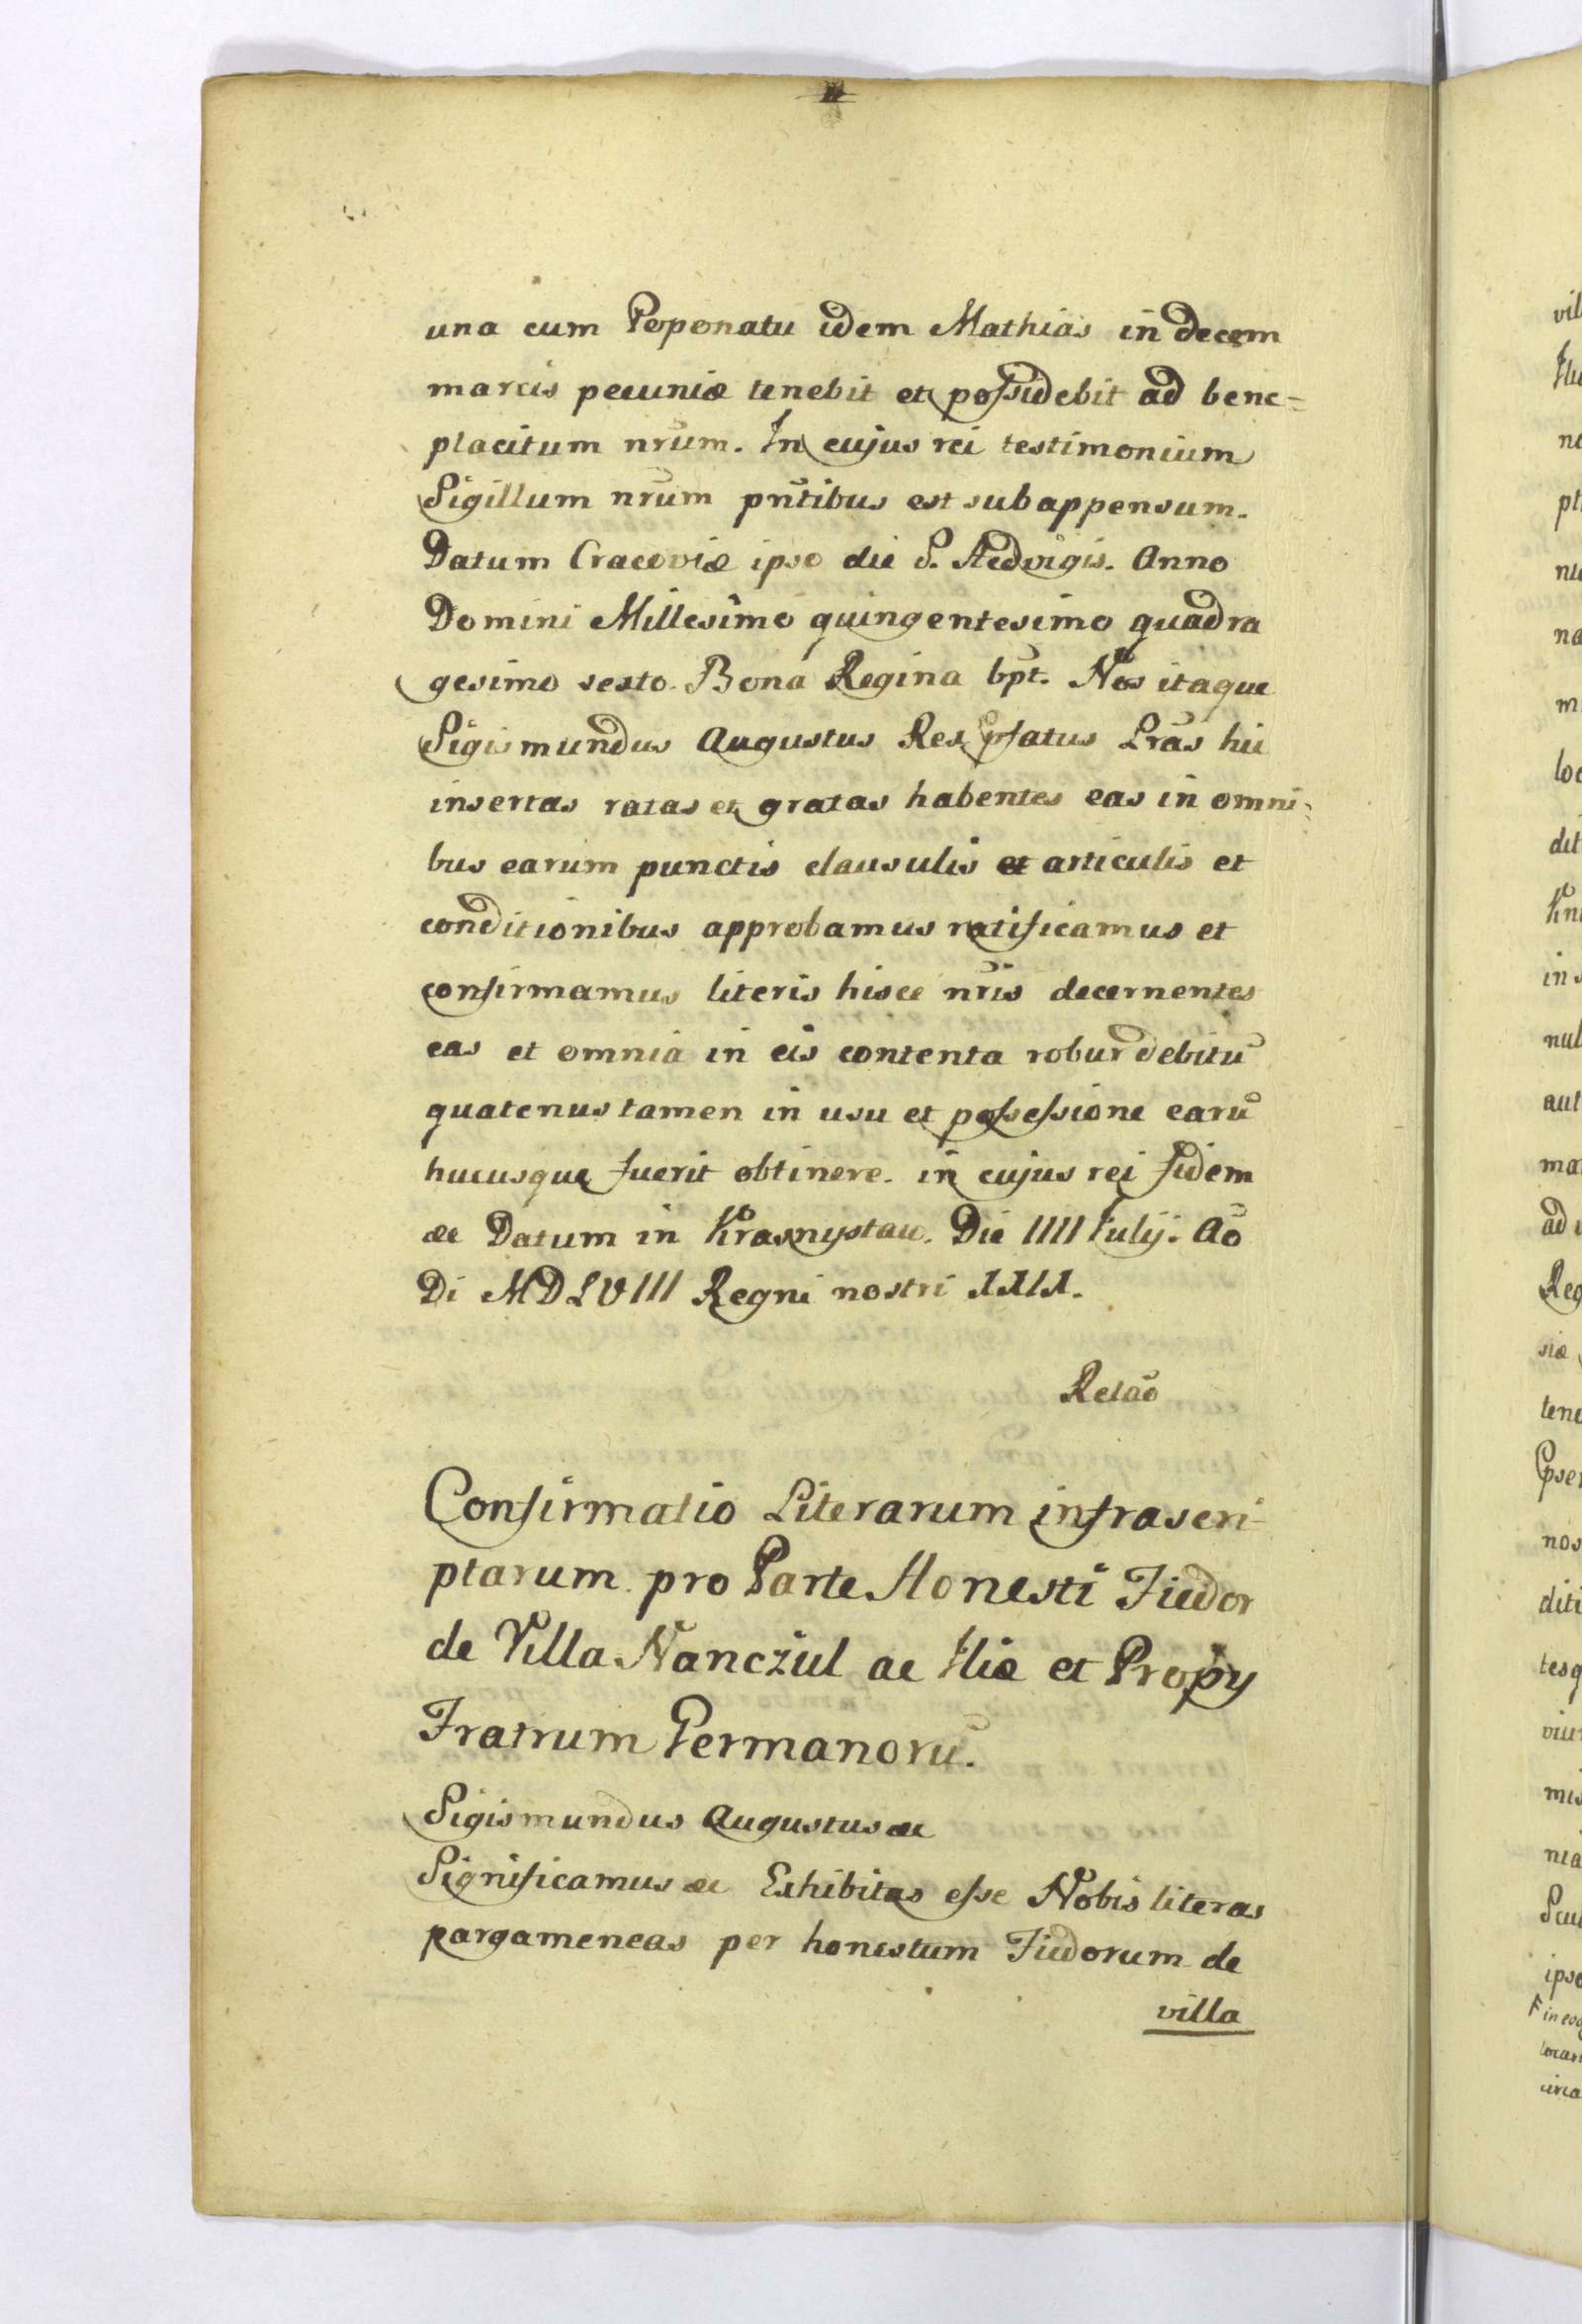 una cum Poponatu idem Mathias in decem
marcis pecuniæ tenebit et possidebit ad bene=
placitum nrūm. In cujus rei testimonium
Sigillum nrūm pn̄tibus est subappensum.
Datum Cracoviæ ipso die S. Hedvigis. Anno
Domini Millesimo quingentesimo quadra
gesimo sexto. Bona Regina bpt. Nos itaque
Sigismundus Augustus Rex pfatus Lrās hic
insertas ratas et gratas habentes eas in omni=
bus earum punctis clausulis et articulis et
conditionibus approbamus ratificamus et
confirmamus literis hisce nrīs decernentes
eas et omnia in eis contenta robur debitū
quatenus tamen in usu et possessione earū
hucusque fuerit obtinere. in cujus rei fidem
ac Datum in Krasnystaw. Die IIII Julij. Aō
Di MDLVIII Regni nostri XXIX.
Relaō
Confirmatio Literarum infrascri-
ptarum pro Parte Honesti Fiedor
de Villa Nanczul ac Iliæ et Propy
Fratrum Germanorū.
Sigismundus Augustus ac
Significamus ac Exhibitas esse Nobis literas
pargameneas per honestum Fiedorum de
villa